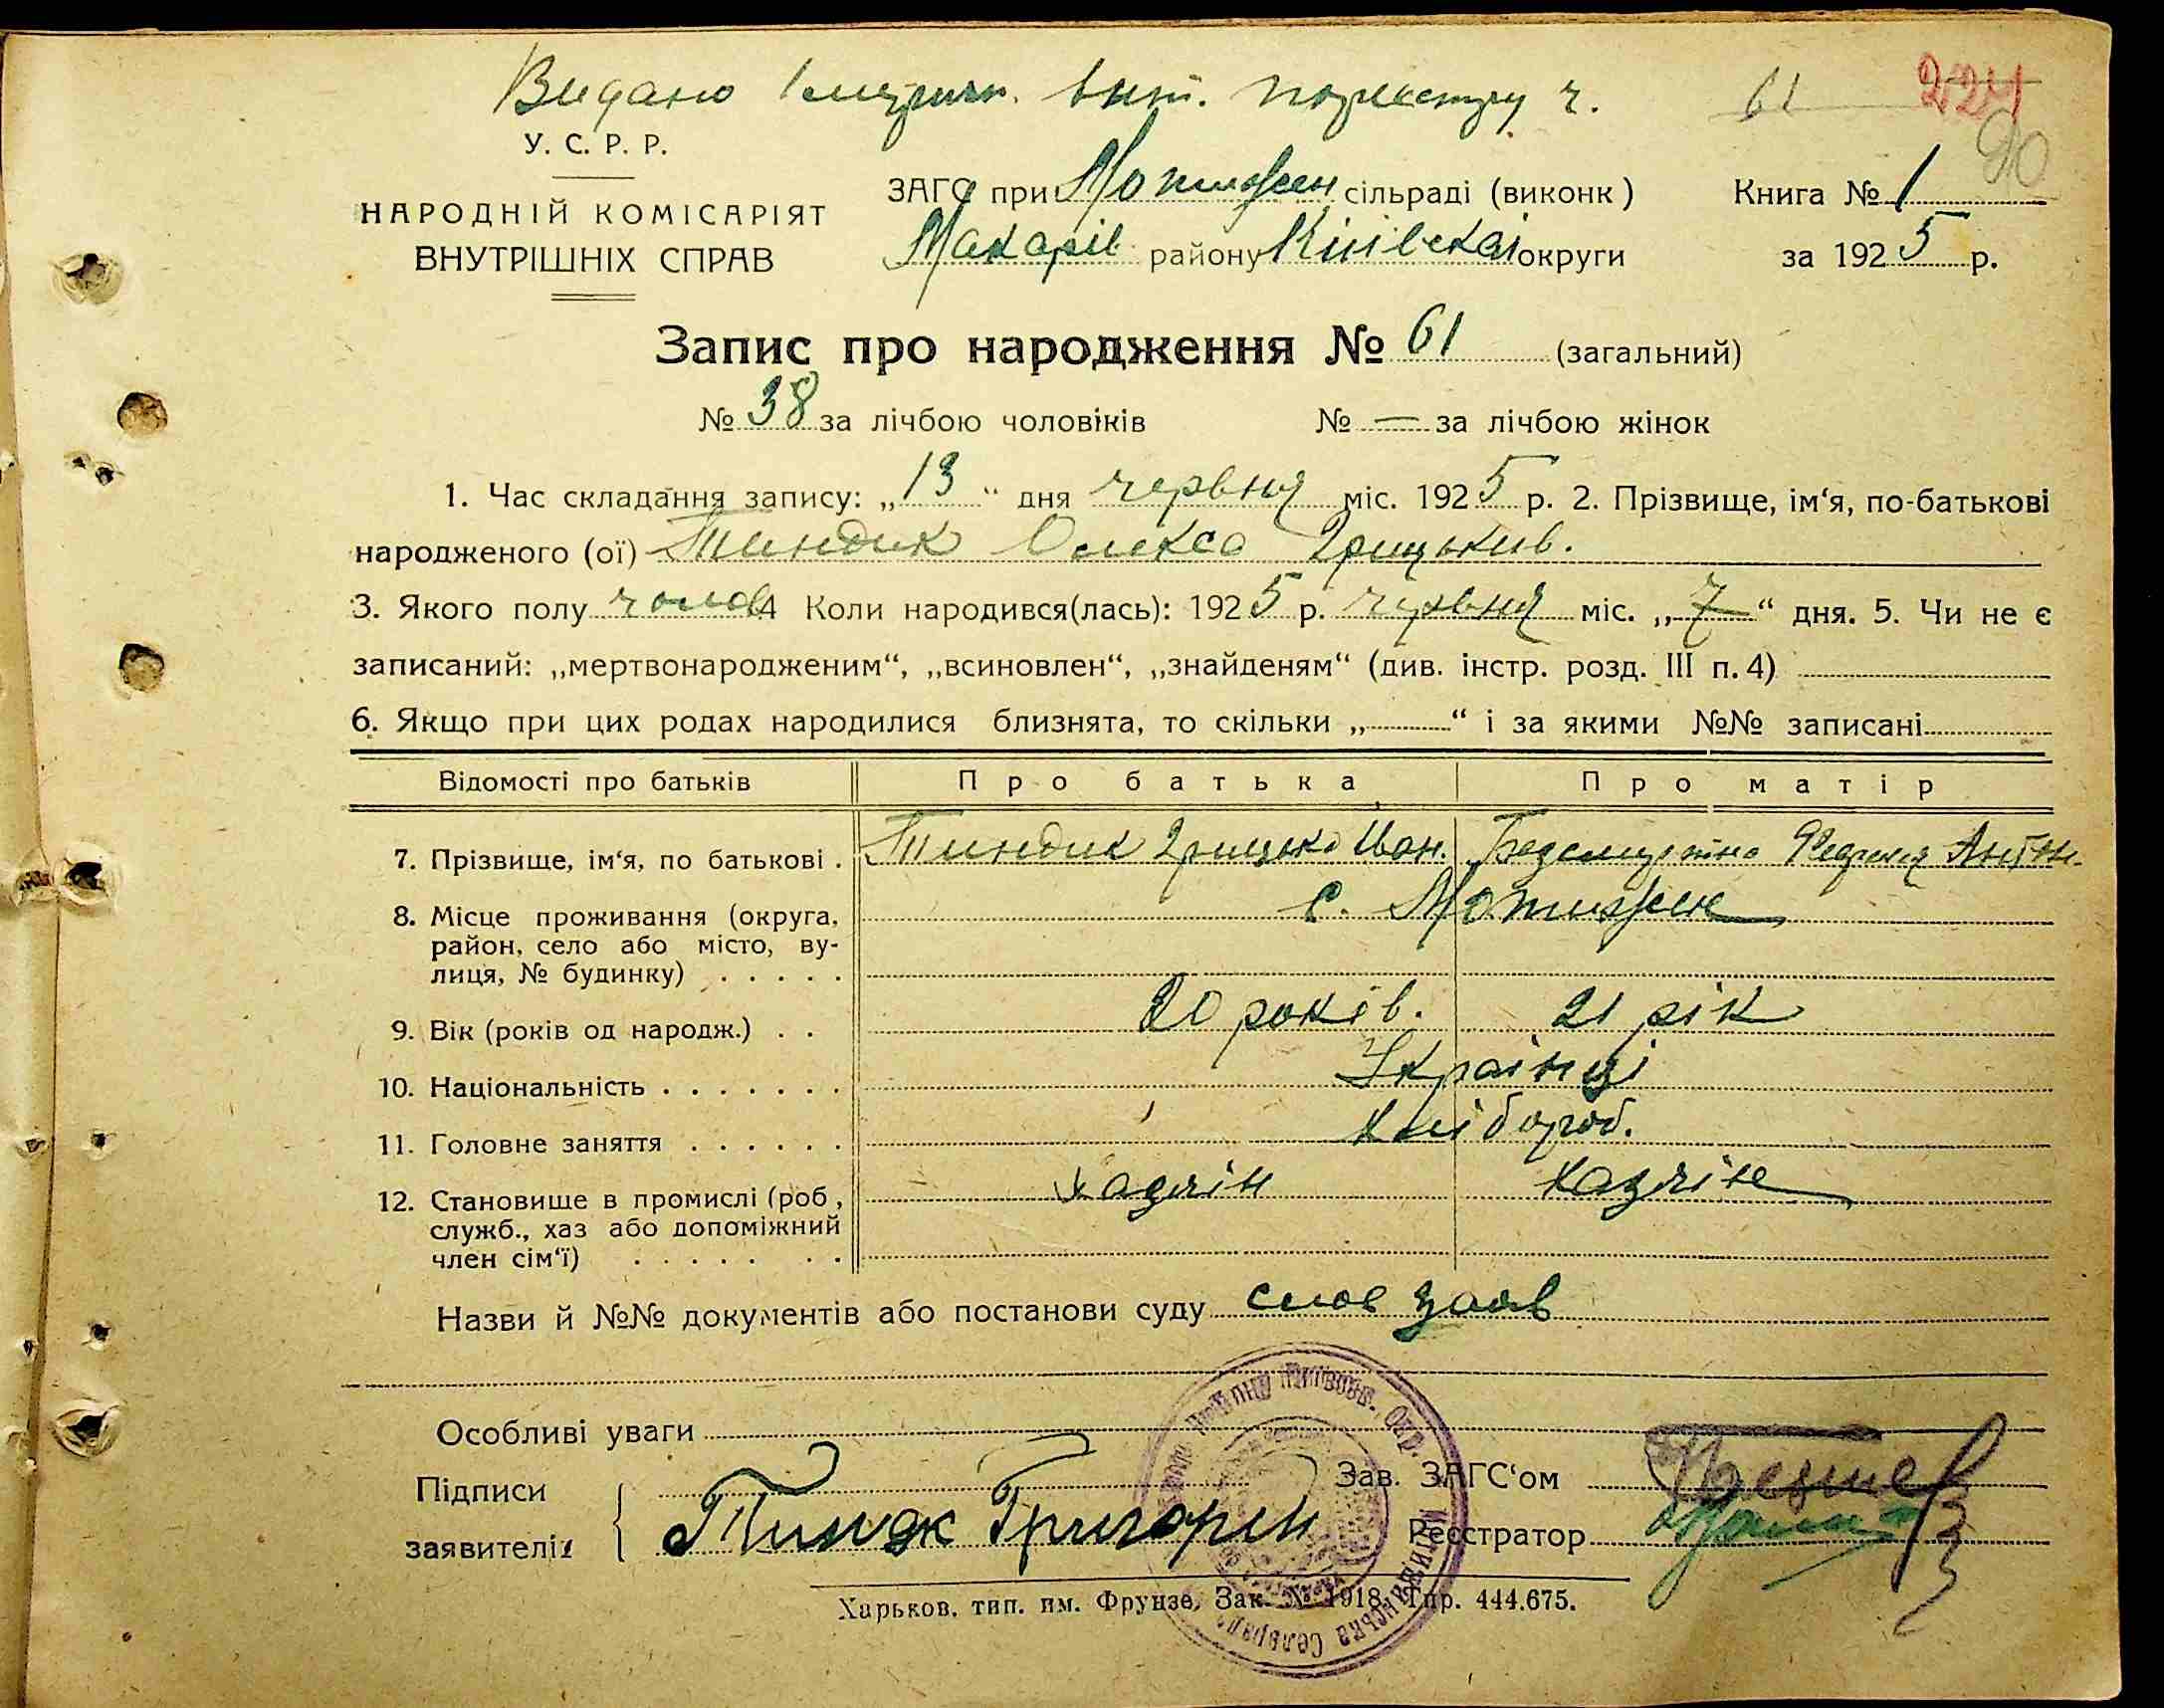 Видано вит. по реєстру ч. 61 224
90
У. С. Р. Р.
НАРОДНІЙ КОМІСАРІЯТ
ВНУТРІШНІХ СПРАВ
ЗАГС при Мотижен сільраді (виконк) Книга № 1
Макарів району Київської округи за 1925 р.
Запис про народження № 61 (загальний)
№ 38 за лічбою чоловіків № — за лічбою жінок
1. Час складання запису: „13“ дня червня міс. 1925 р. 2. Прізвище, ім‘я, по-батькові
народженого (ої) Тиндик Олекса Грицьків.
3. Якого полу чолов 4 Коли народився(лась): 1925 р. червня міс. „7“ дня. 5. Чи не є
записаний: „мертвонародженим“, „всиновлен“, „знайденям“ (див. інстр. розд. III п. 4)
6. Якщо при цих родах народилися близнята, то скільки „ “ і за якими №№ записані
Відомості про батьків Про батька Про матір
7. Прізвище, ім‘я, по батькові . Тиндик Грицько Іван. Антон.
8. Місце проживання (округа, с. Мотижин
район, село або місто, ву-
лиця, № будинку) . . . . .
9. Вік (років од народж.) . . 20 років. 21 рік
10. Національність . . . . . . . Українці
11. Головне заняття . . . . . . Хлібороб.
12. Становище в промислі (роб, хазяїн хазяїне
служб., хаз або допоміжний
член сім‘ї) . . . . . . .
Назви й №№ документів або постанови суду слов заяв
Особливі уваги
Підписи Зав. ЗАГС‘ом
заявителів Тиндик Григорій Реєстратор
Харьков, тип. им. Фрунзе, Зак. № 1918. Тир. 444.675.